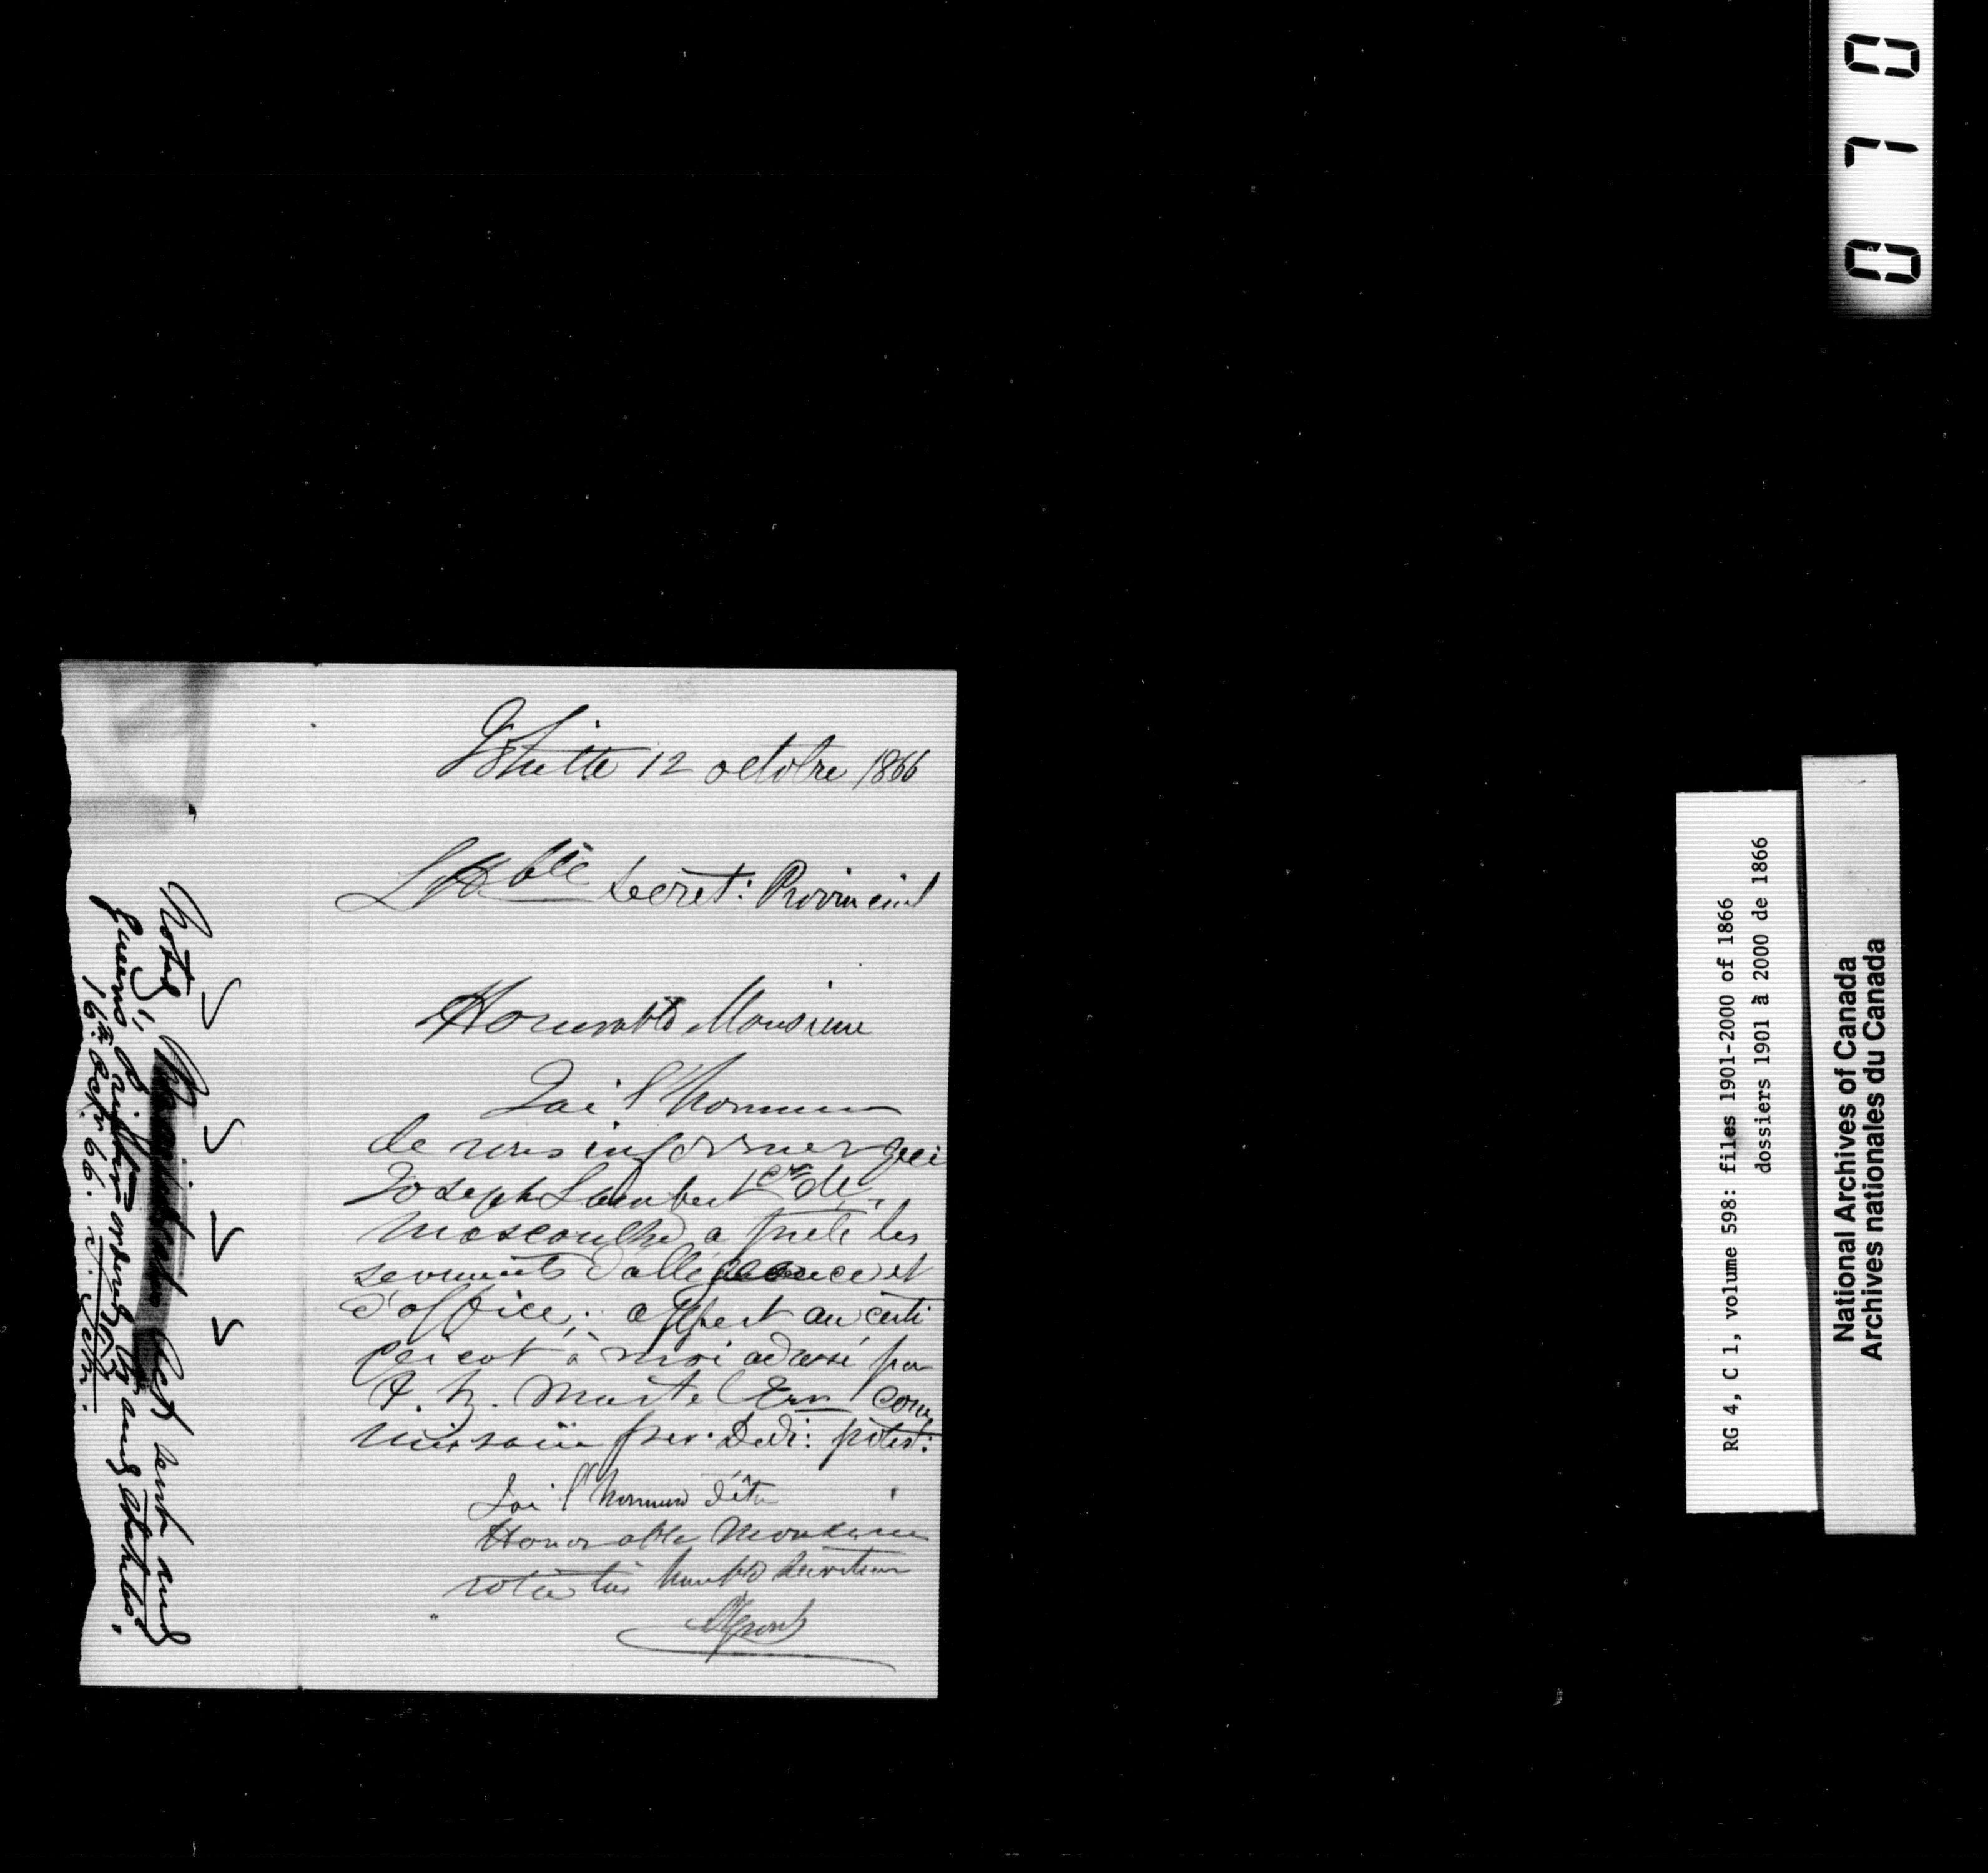 12 octobre 1866
L'Hble Secret: Provincial
Honorable Monsieur
J'ai l'honneur
de vous informer que
Joseph Lambert de
Mascouche a prêté les
serments d'allégeance et
d'office; appert au certi
ficat à moi adressé par
Martel Ecr Com
missaire per: Dedi: potest:
J'ai l'honneur d'être
Honorable Monsieur
votre très humble serviteur
Noted, sent and
Queens Printer ordered to send Statutes.
16th Octr. 66.
0 7 0
RG 4, C 1, volume 598: files 1901-2000 of 1866
dossiers 1901 à 2000 de 1866
National Archives of Canada
Archives nationales du Canada